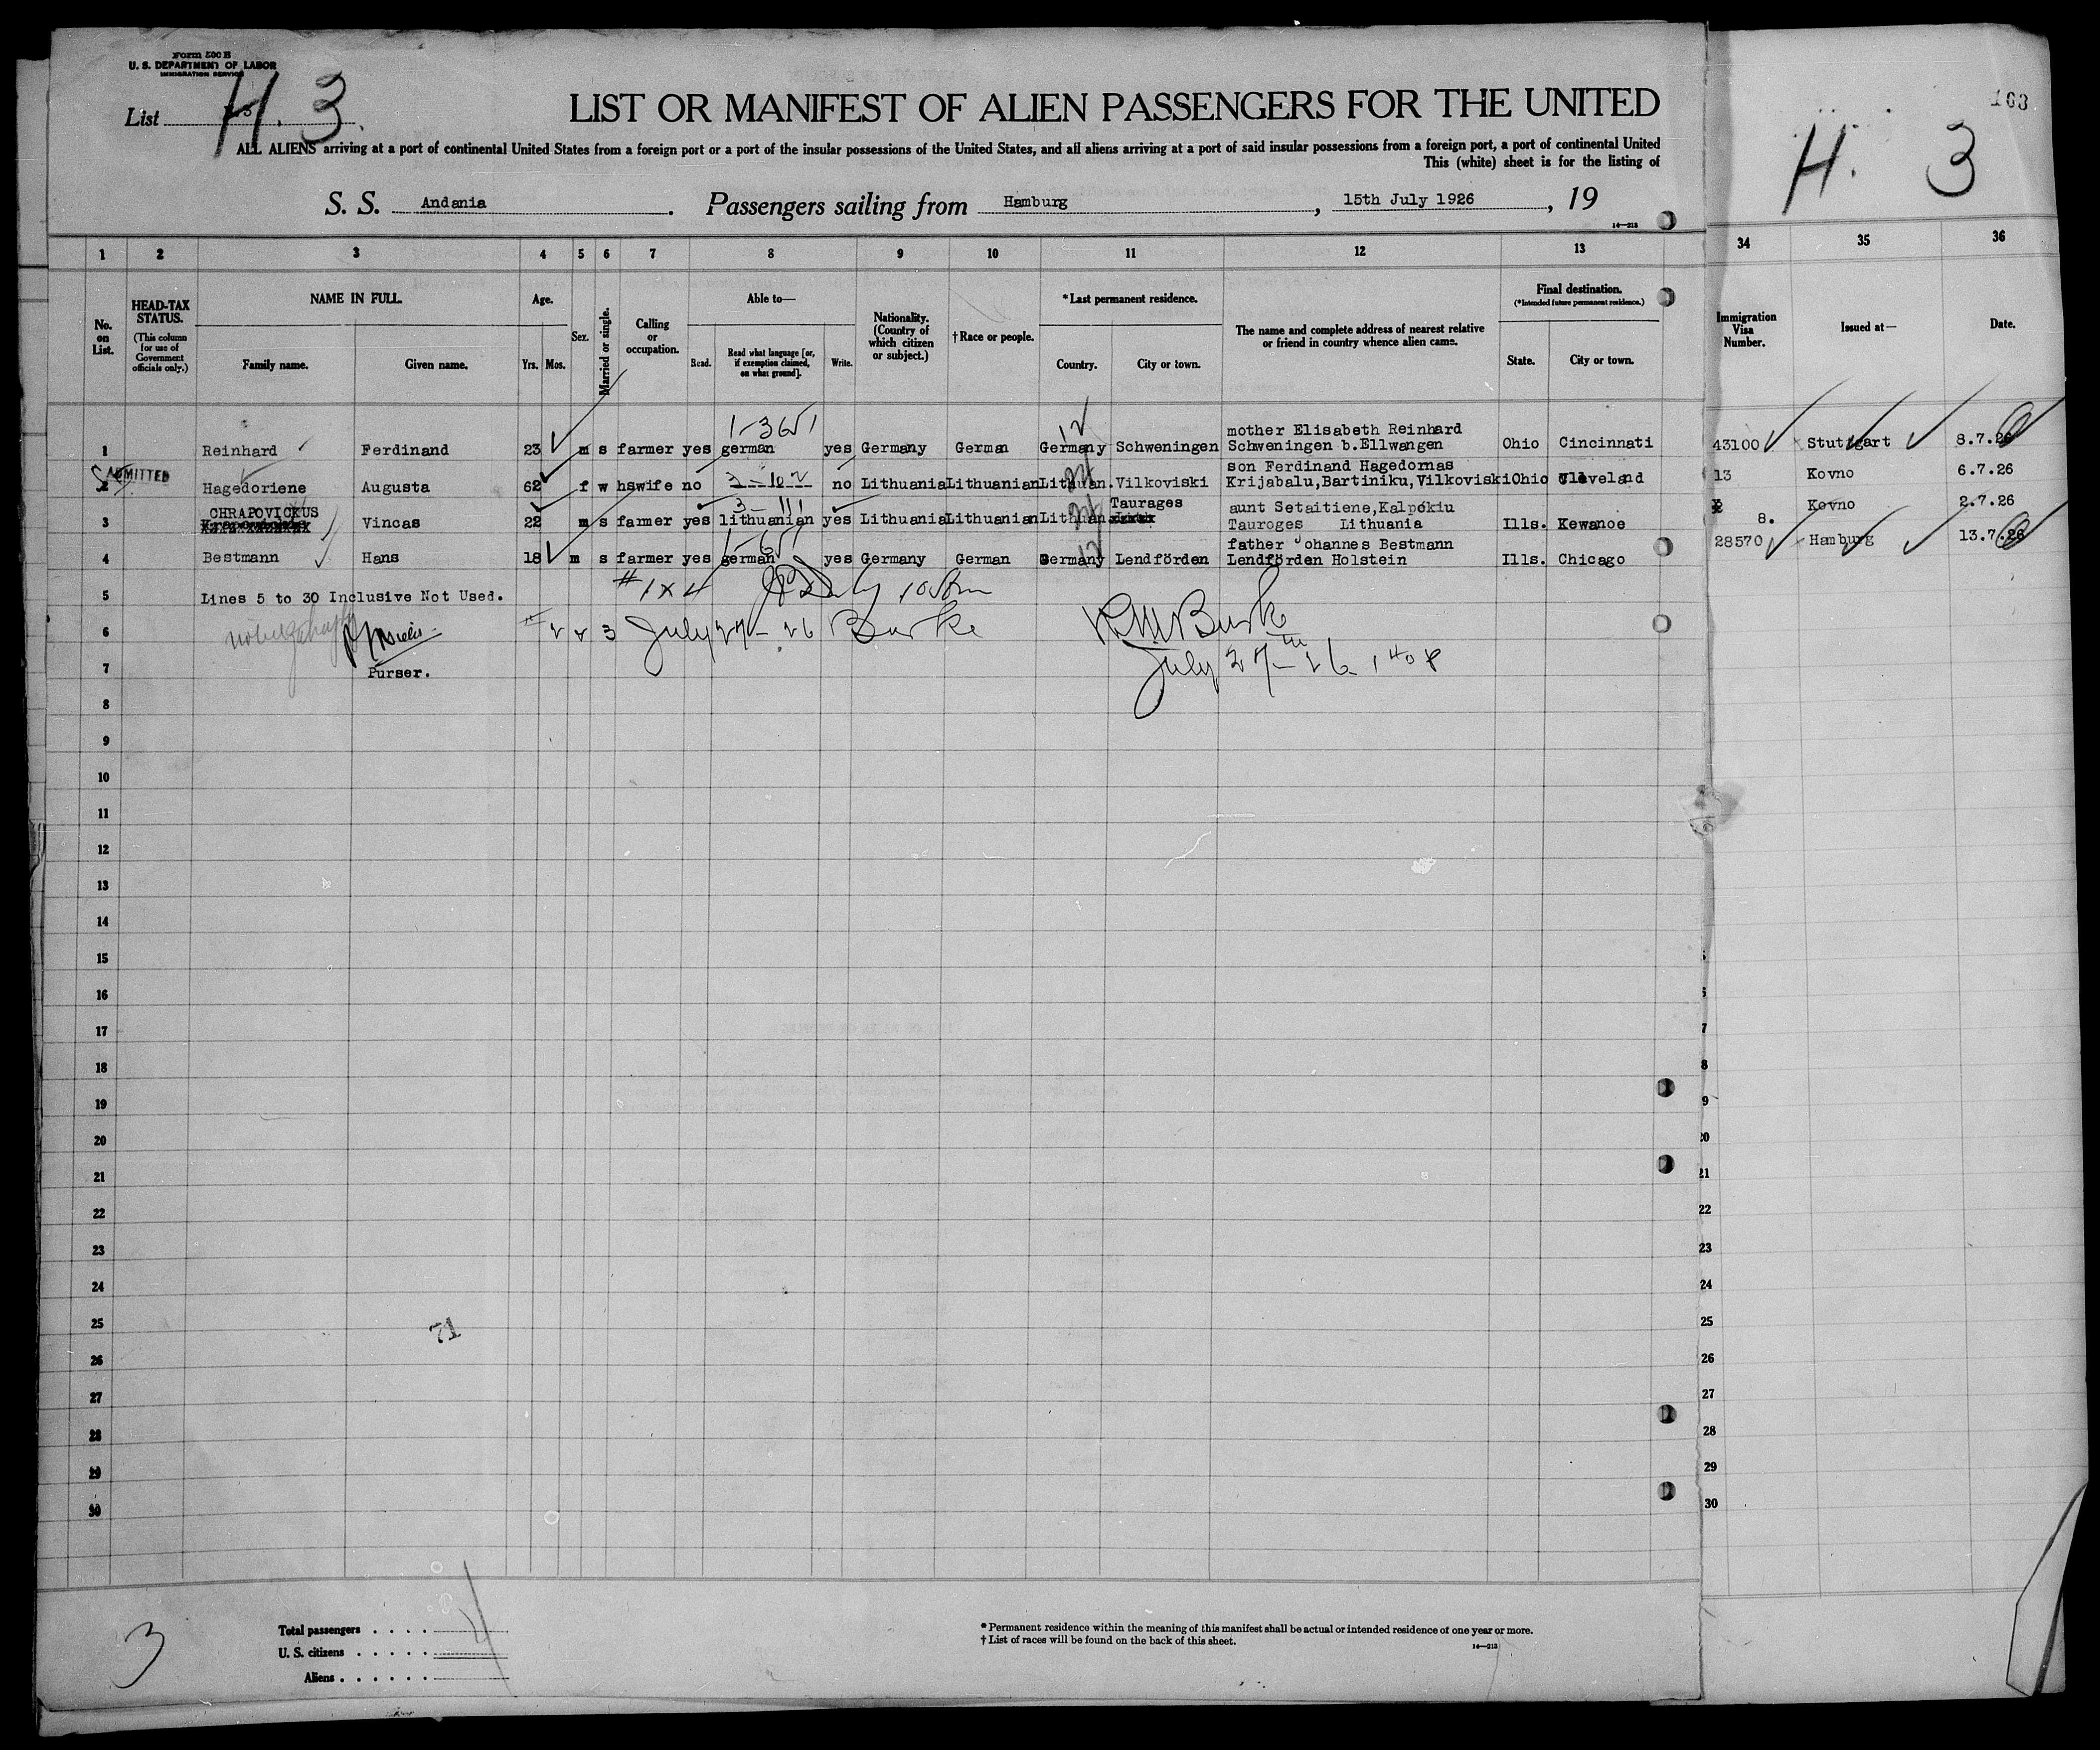 Form 500 B
U. S. DEPARTMENT OF LABOR
IMMIGRATION SERVICE
List H. 3.
LIST OR MANIFEST OF ALIEN PASSENGERS FOR THE UNITED
ALL ALIENS arriving at a port of continental United States from a foreign port or a port of the insular possessions of the United States, and all aliens arriving at a port of said insular possessions from a foreign port, a port of continental United
This (white) sheet is for the listing of
S. S. Andania. Passengers sailing from Hamburg, 15th July 1926, 19
14—213
163
H. 3
1 2 3 4 5 6 7 8 9 10 11 12 13 34 35 36
No. on List.
HEAD-TAX STATUS.
(This column for use of Government officials only.)
NAME IN FULL.
Family name. Given name.
Age.
Yrs. Mos.
Sex.
Married or single.
Calling or occupation.
Able to—
Read. Read what language [or, if exemption claimed, on what ground]. Write.
Nationality. (Country of which citizen or subject.)
†Race or people.
*Last permanent residence.
Country. City or town.
The name and complete address of nearest relative or friend in country whence alien came.
Final destination.
(*Intended future permanent residence.)
State. City or town.
Immigration Visa Number.
Issued at—
Date.
1-3651 12
mother Elisabeth Reinhard
1 Reinhard Ferdinand 23 m s farmer yes german yes Germany German Germany Schweningen Schweningen b.Ellwangen Ohio Cincinnati 43100 Stuttgart 8.7.26
ADMITTED
son Ferdinand Hagedornas
2 Hagedoriene Augusta 62 f w hswife no no Lithuania Lithuanian Lithuan. Vilkoviski Krijabalu,Bartiniku,Vilkoviski Ohio Cleveland 13 Kovno 6.7.26
CHRAPOVICKUS 3-111 Taurages aunt Setaitiene,Kalpokiu
3 Vincas 22 m s farmer yes lithuanian yes Lithuania Lithuanian Lithuan. Tauroges Lithuania Ills. Kewanoe 8. Kovno 2.7.26
1-651 father Johannes Bestmann
4 Bestmann Hans 18 m s farmer yes german yes Germany German Germany Lendförden Lendförden Holstein Ills. Chicago 28570 Hamburg 13.7.26
#1 x 4
5 Lines 5 to 30 Inclusive Not Used.
6 2 x 3 July 27-26 Burke RMBurke
July 27th-26
7 Purser.
8
9
10
11
12
13
14
15
16
17
18
19
20
21
22
23
24
25
71
26
27
28
29
30
3
Total passengers
U. S. citizens
Aliens
* Permanent residence within the meaning of this manifest shall be actual or intended residence of one year or more.
† List of races will be found on the back of this sheet.
14—213